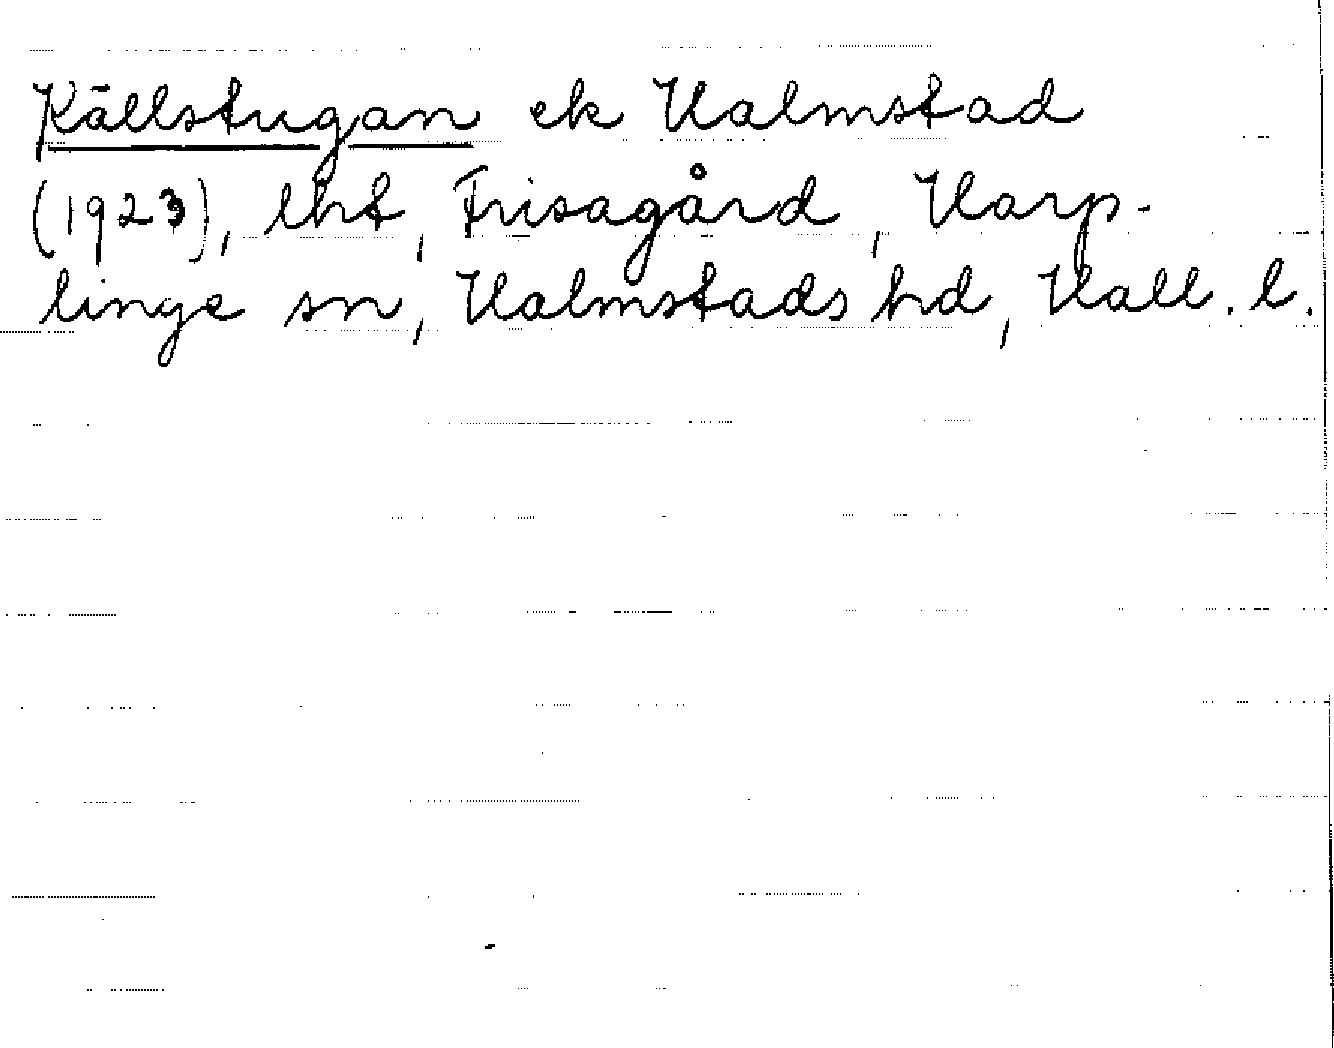 Källstugan ek Halmstad
(1923), lht, Frisagård, Harp-
linge sn, Halmstads hd, Hall. l.